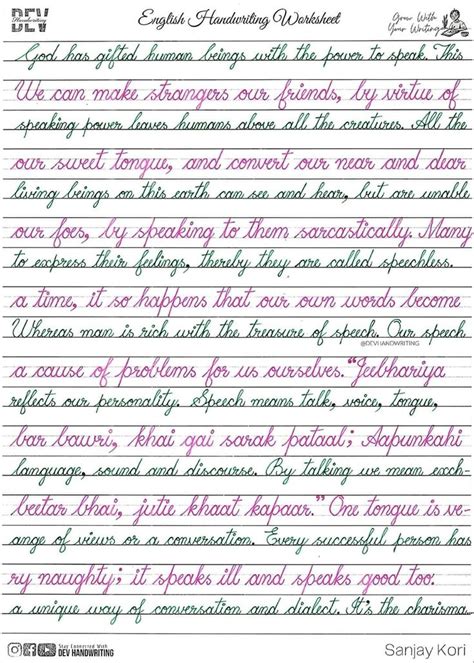 DEV
Handwriting
English Handwriting Worksheet
Grow With
Your Writing
God has gifted human beings with the power to speak. This
We can make strangers our friends, by virtue of
speaking power leaves humans above all the creatures. All the
our sweet tongue, and convert our near and dear
living beings on this earth can see and hear, but are unable
our foes, by speaking to them sarcastically. Many
to express their feelings, thereby they are called speechless.
a time, it so happens that our own words become
Whereas man is rich with the treasure of speech. Our speech
@DEVHANDWRITING
a cause of problems for us ourselves. "Jeebhariya
reflects our personality. Speech means talk, voice, tongue,
bar bawri, khai gai sarak pataal; Aapunkahi
language, sound and discourse. By talking we mean exch-
beetar bhai, jutie khaat kapaar." One tongue is ve-
ange of views or a conversation. Every successful person has
ry naughty; it speaks ill and speaks good too.
a unique way of conversation and dialect. It's the charisma
Stay Connected With
DEV HANDWRITING
Sanjay Kori